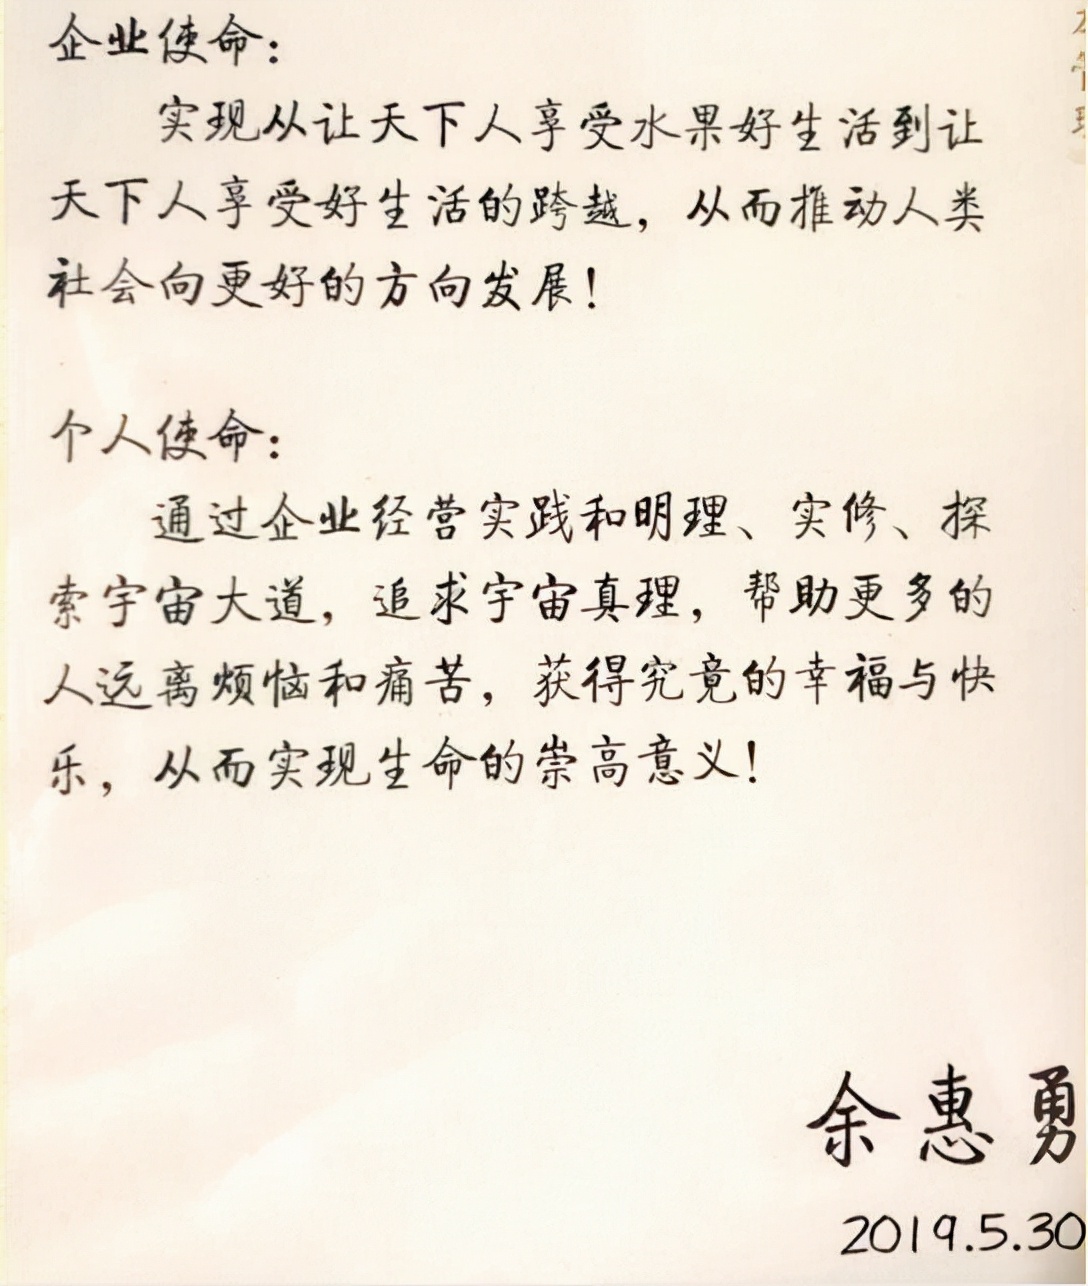 企业使命：
实现从让天下人享受水果好生活到让
天下人享受好生活的跨越，从而推动人类
社会向更好的方向发展！
个人使命：
通过企业经营实践和明理、实修、探
索宇宙大道，追求宇宙真理，帮助更多的
人远离烦恼和痛苦，获得究竟的幸福与快
乐，从而实现生命的崇高意义！
余惠勇
2019.5.30